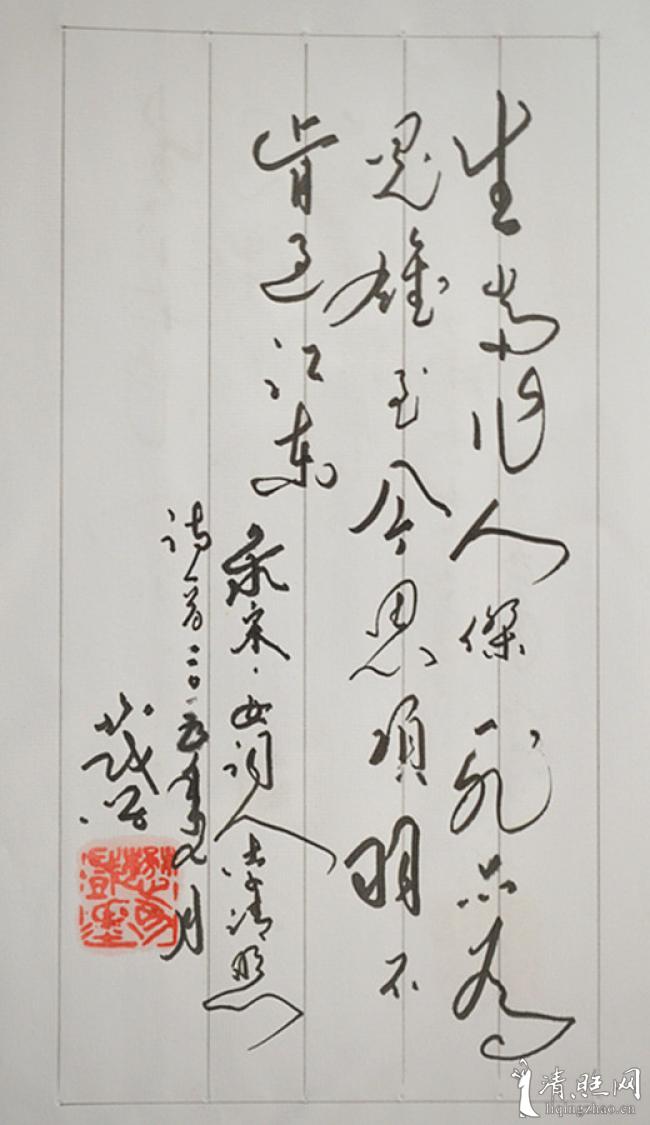 生当作人傑死亦为
鬼雄至今思项羽不
肯过江东
录宋·女词人李清照
诗一首二〇一五年九月
清照网
liqingzhao.cn